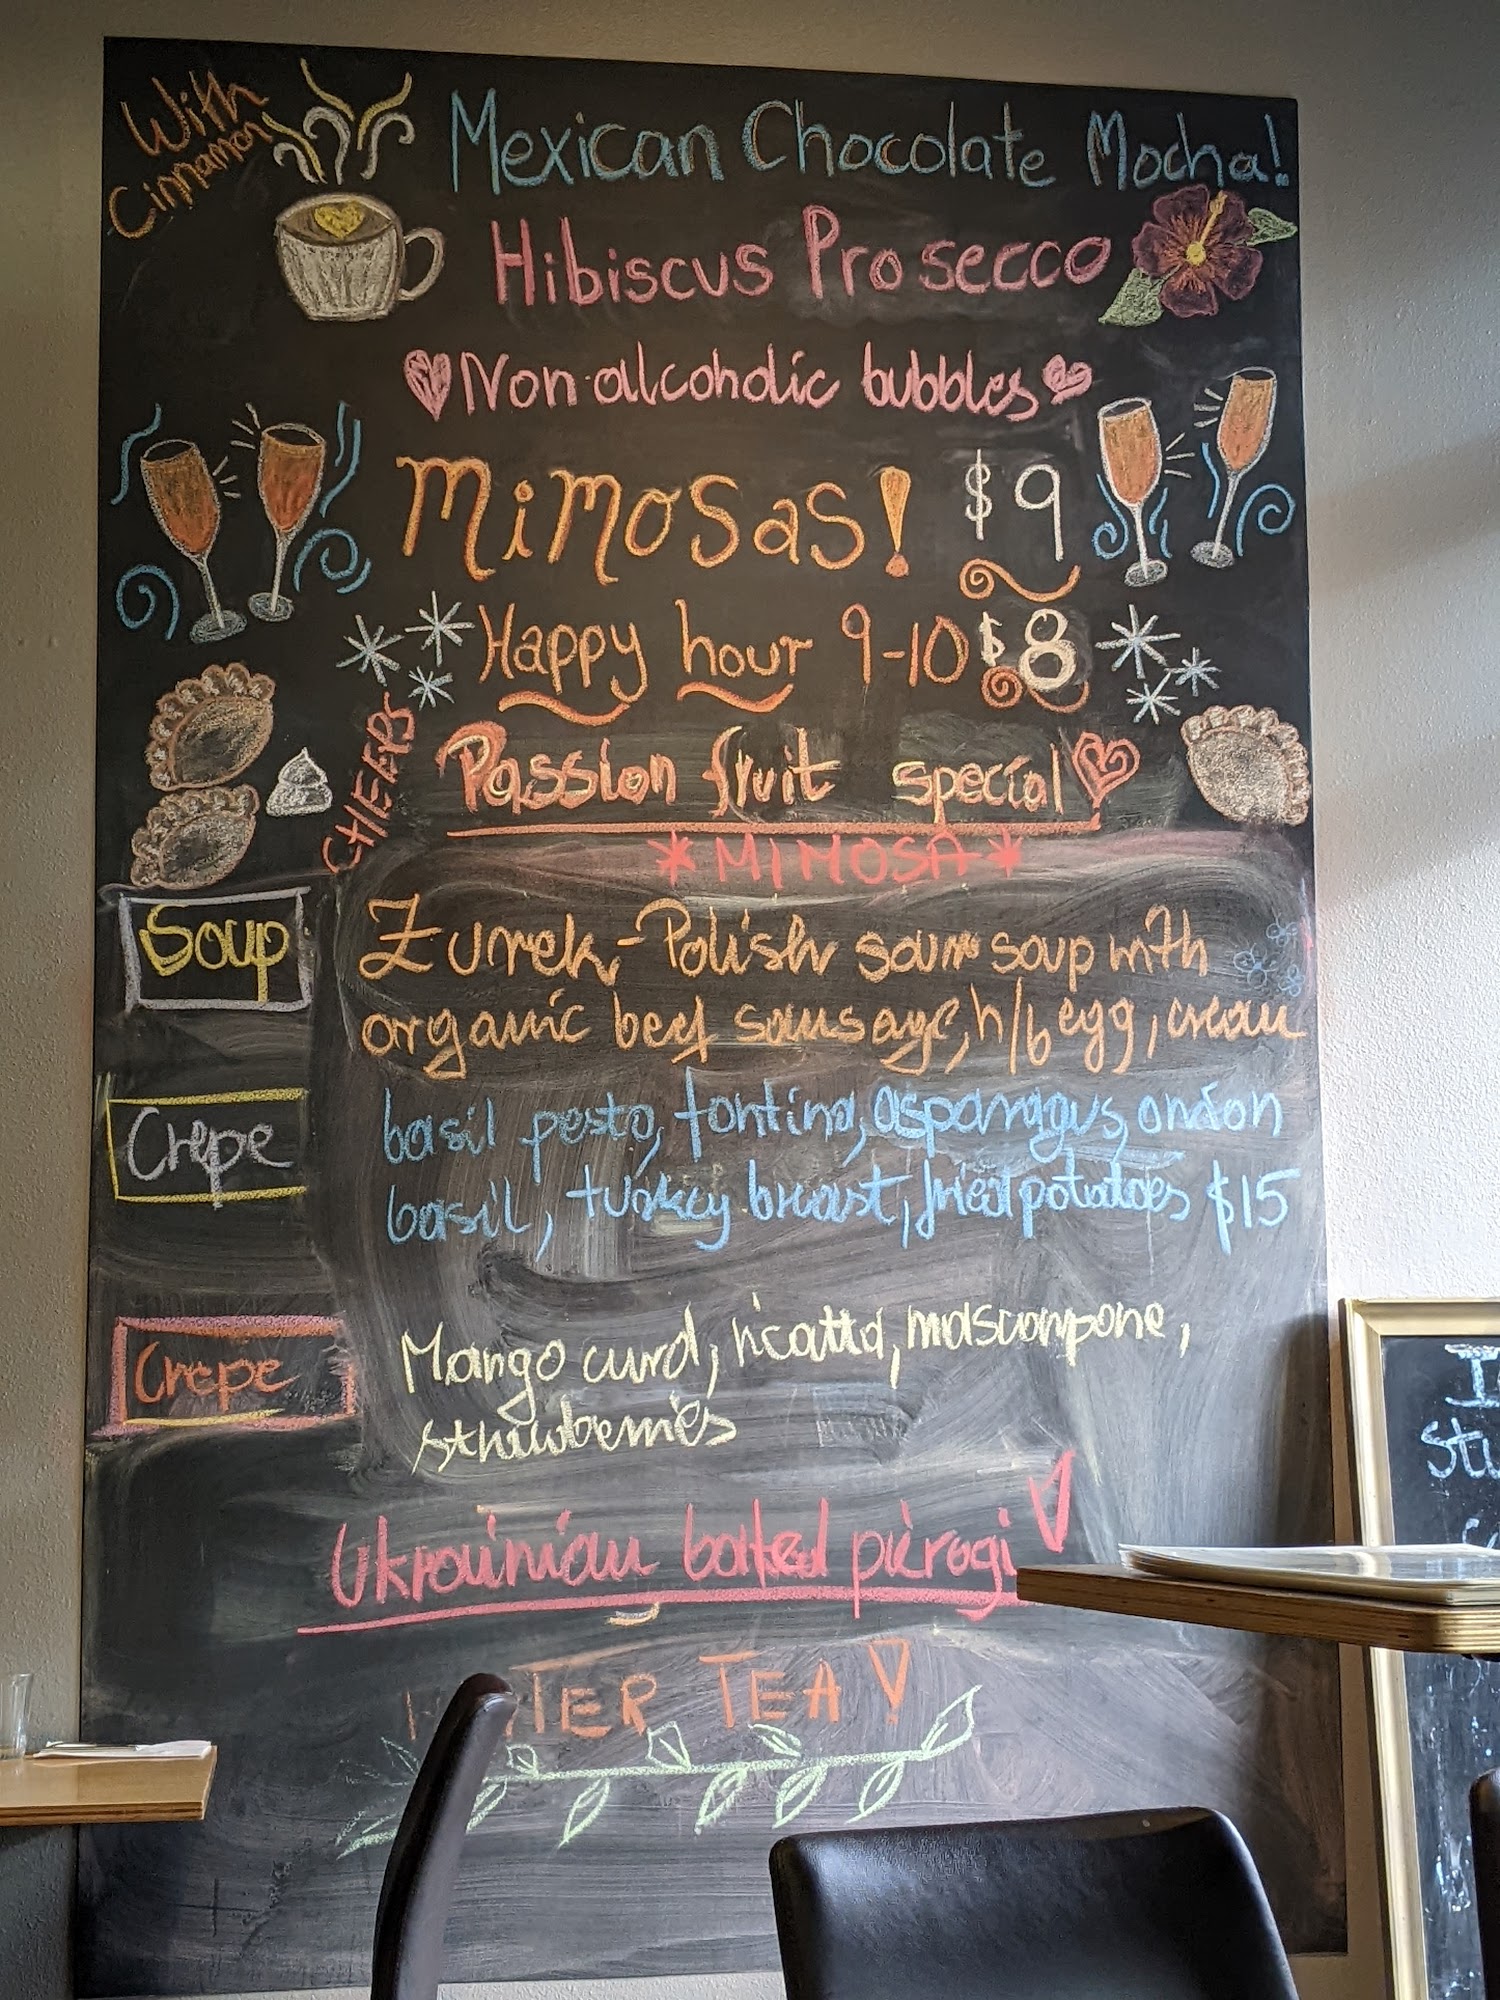 With
Cinnamon
Mexican Chocolate Mocha!
Hibiscus Prosecco
Non-alcoholic bubbles
Mimosas! $9
Happy hour 9-10 $8
CHEERS
Passion fruit special
*MIMOSA*
Soup
Zurek - Polish sour soup with
organic beef sausage, h/b egg, cream
Crepe
basil pesto, fontina, asparagus, onion
basil, turkey breast, fried potatoes $15
Crepe
Mango curd, ricotta, mascarpone,
strawberries
Ukrainian boiled pierogi
TER TEA!